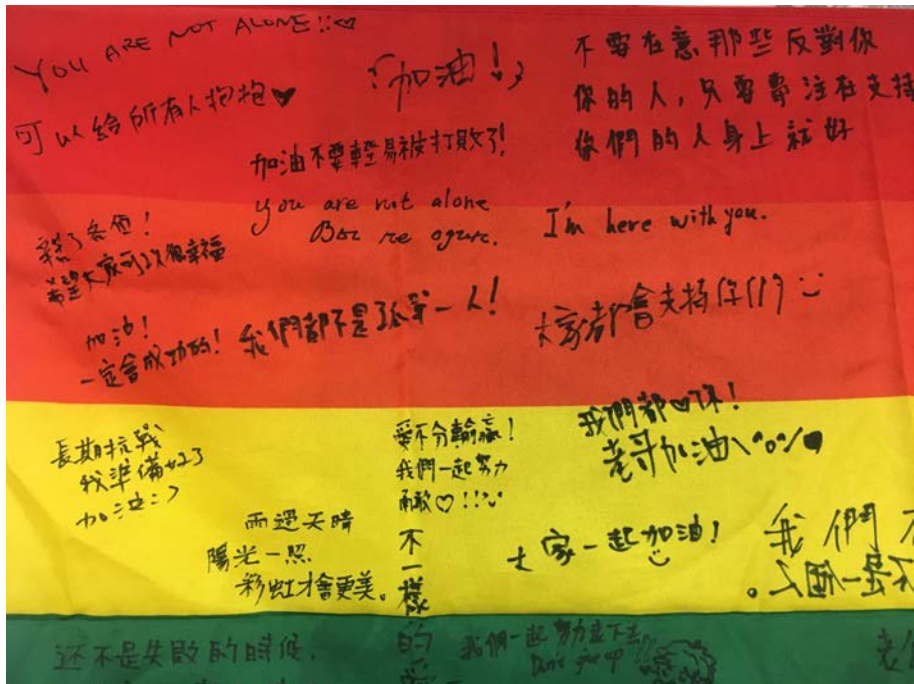 YOU ARE NOT ALONE!!♡
可以給所有人抱抱♥
加油!
不要在意那些反對你
你的人,只需專注在支持
你們的人身上就好
加油不要輕易被打敗了!
you are not alone
I'm here with you.
辛苦了各位!
希望大家可以很幸福
加油!
一定會成功的!
我們都不是孤單一人!
大家都會支持你們 :)
長期抗戰
我準備好了
加油:)
愛不分輸贏!
我們一起努力
勇敢♡!!
我們都♡你!
老哥加油\^o^/♥
雨過天晴
陽光一照
彩虹才會更美。
不一樣
的
大家一起加油!
我們不
一個人。
还不是失敗的時候.
我們一起努力走下去!!
Don't give up